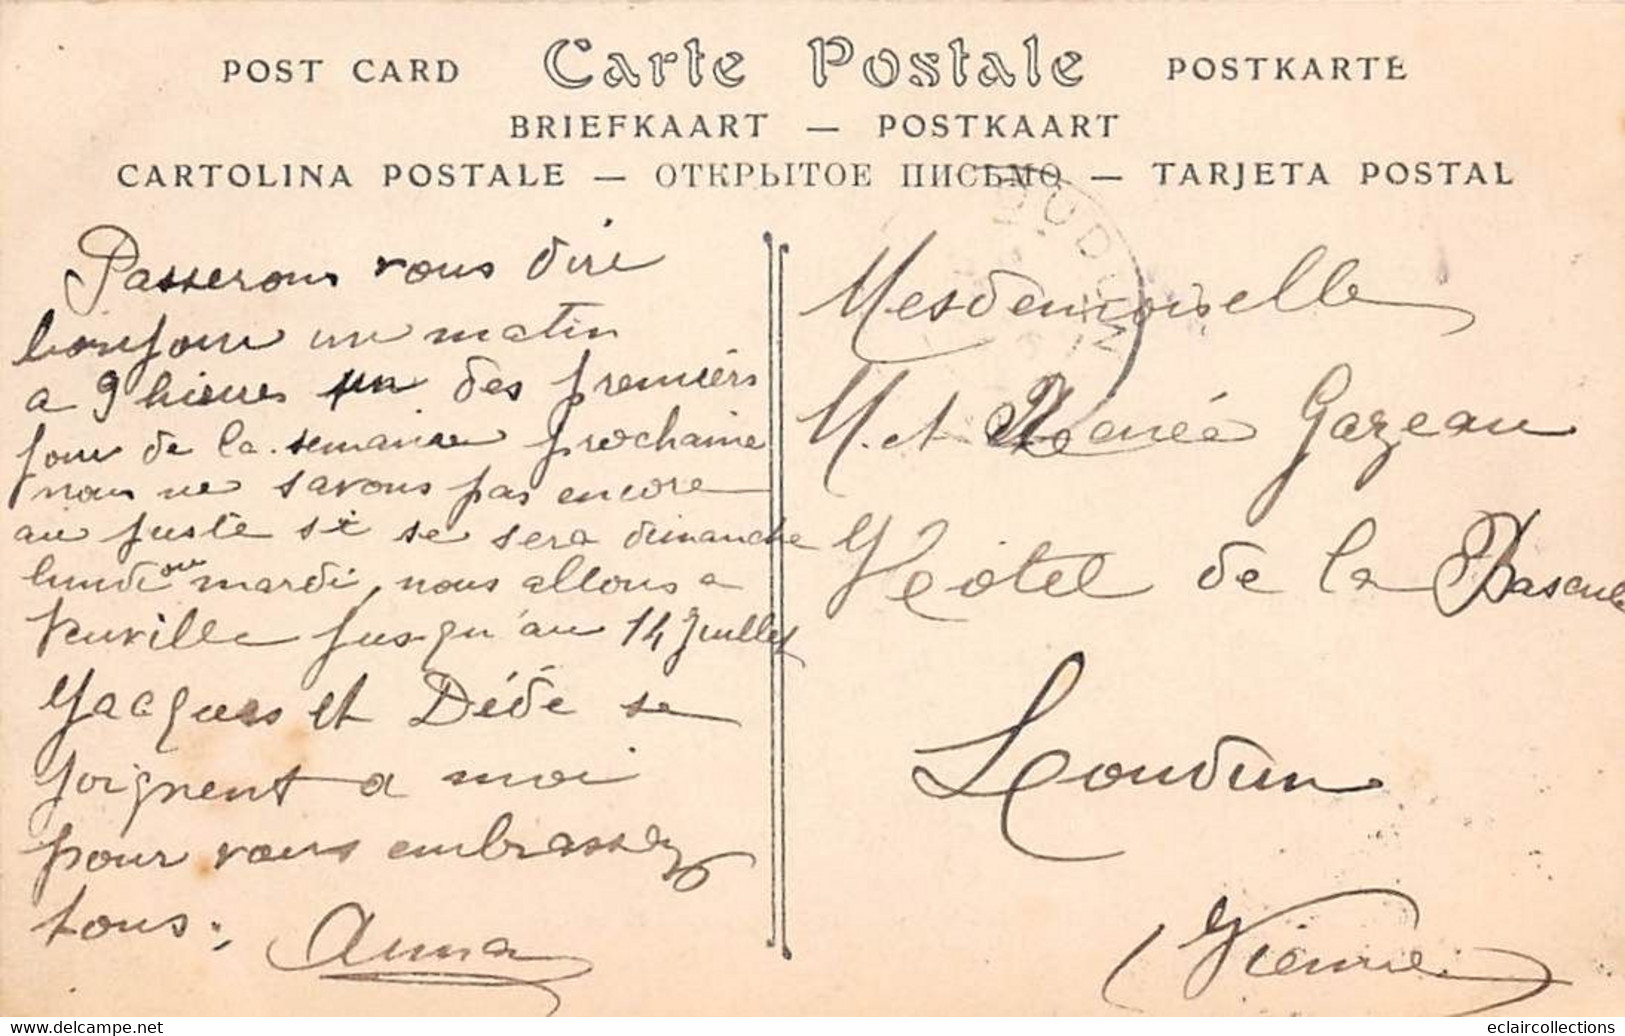 POST CARD Carte Postale POSTKARTE
BRIEFKAART — POSTKAART
CARTOLINA POSTALE — ОТКРЫТОЕ ПИСЬМО — TARJETA POSTAL
Passerons vous dire
bonjour un matin
a 9 hieures un des premiers
jour de la semaine prochaine
nous ne savons pas encore
au juste si se sera dimanche
lundi ou mardi, nous allons a
Neuville jusqu'au 14 Juillet
Jacques et Dédé se
joignent a moi
pour vous embrasser
tous.
Anna
LOUDUN
Mesdemoiselle
M. et Renée Gazeau
Hôtel de la Bascule
Loudun
Vienne
www.delcampe.net
eclaircollections